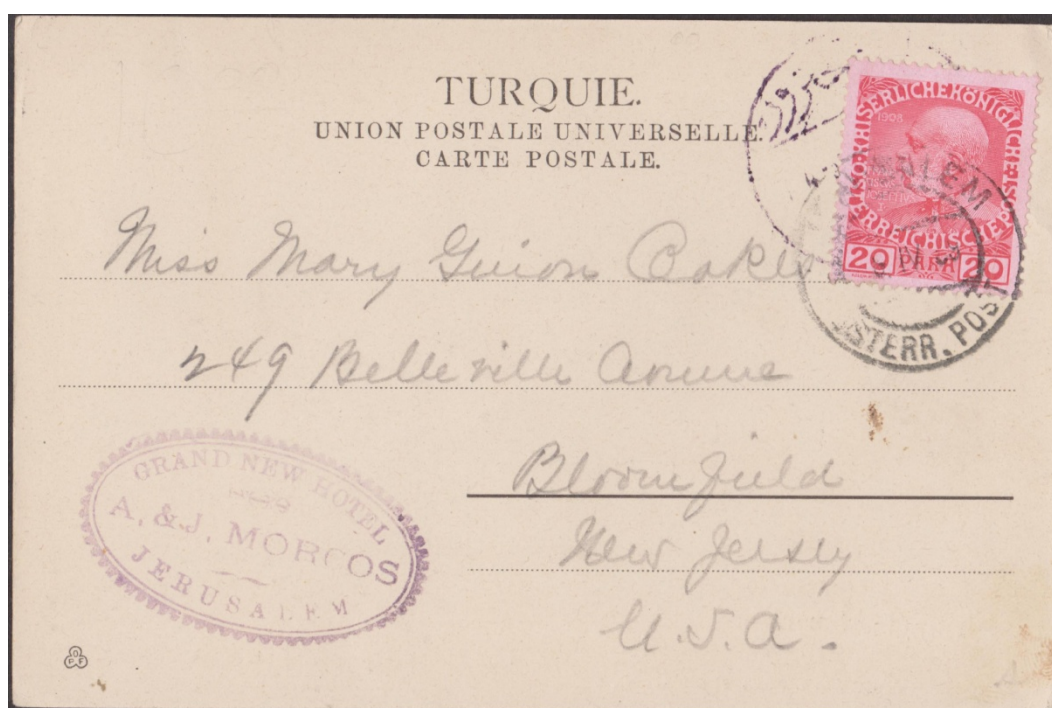 TURQUIE.
UNION POSTALE UNIVERSELLE.
CARTE POSTALE.
1908
KAISERLICHEKÖNIGLICHE
ÖSTERREICHISCHE POST
20 PARA 20
JERUSALEM
ÖSTERR. POST
Miss Mary Guion Oakes
249 Belleville Avenue
Bloomfield
New Jersey
U.S.A.
GRAND NEW HOTEL
A. & J. MORCOS
JERUSALEM